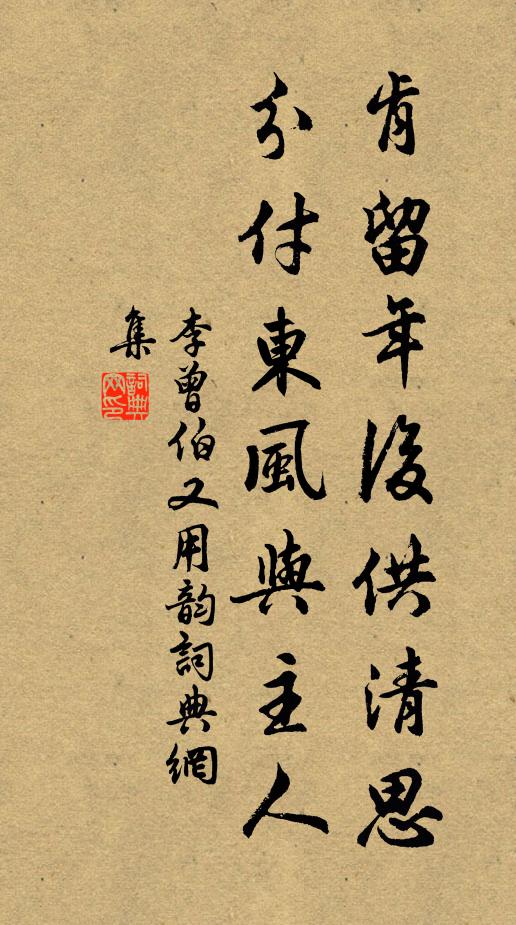 肯留年後供清思
分付東風與主人
李曾伯又用韵詞典網
集
詞典
网印